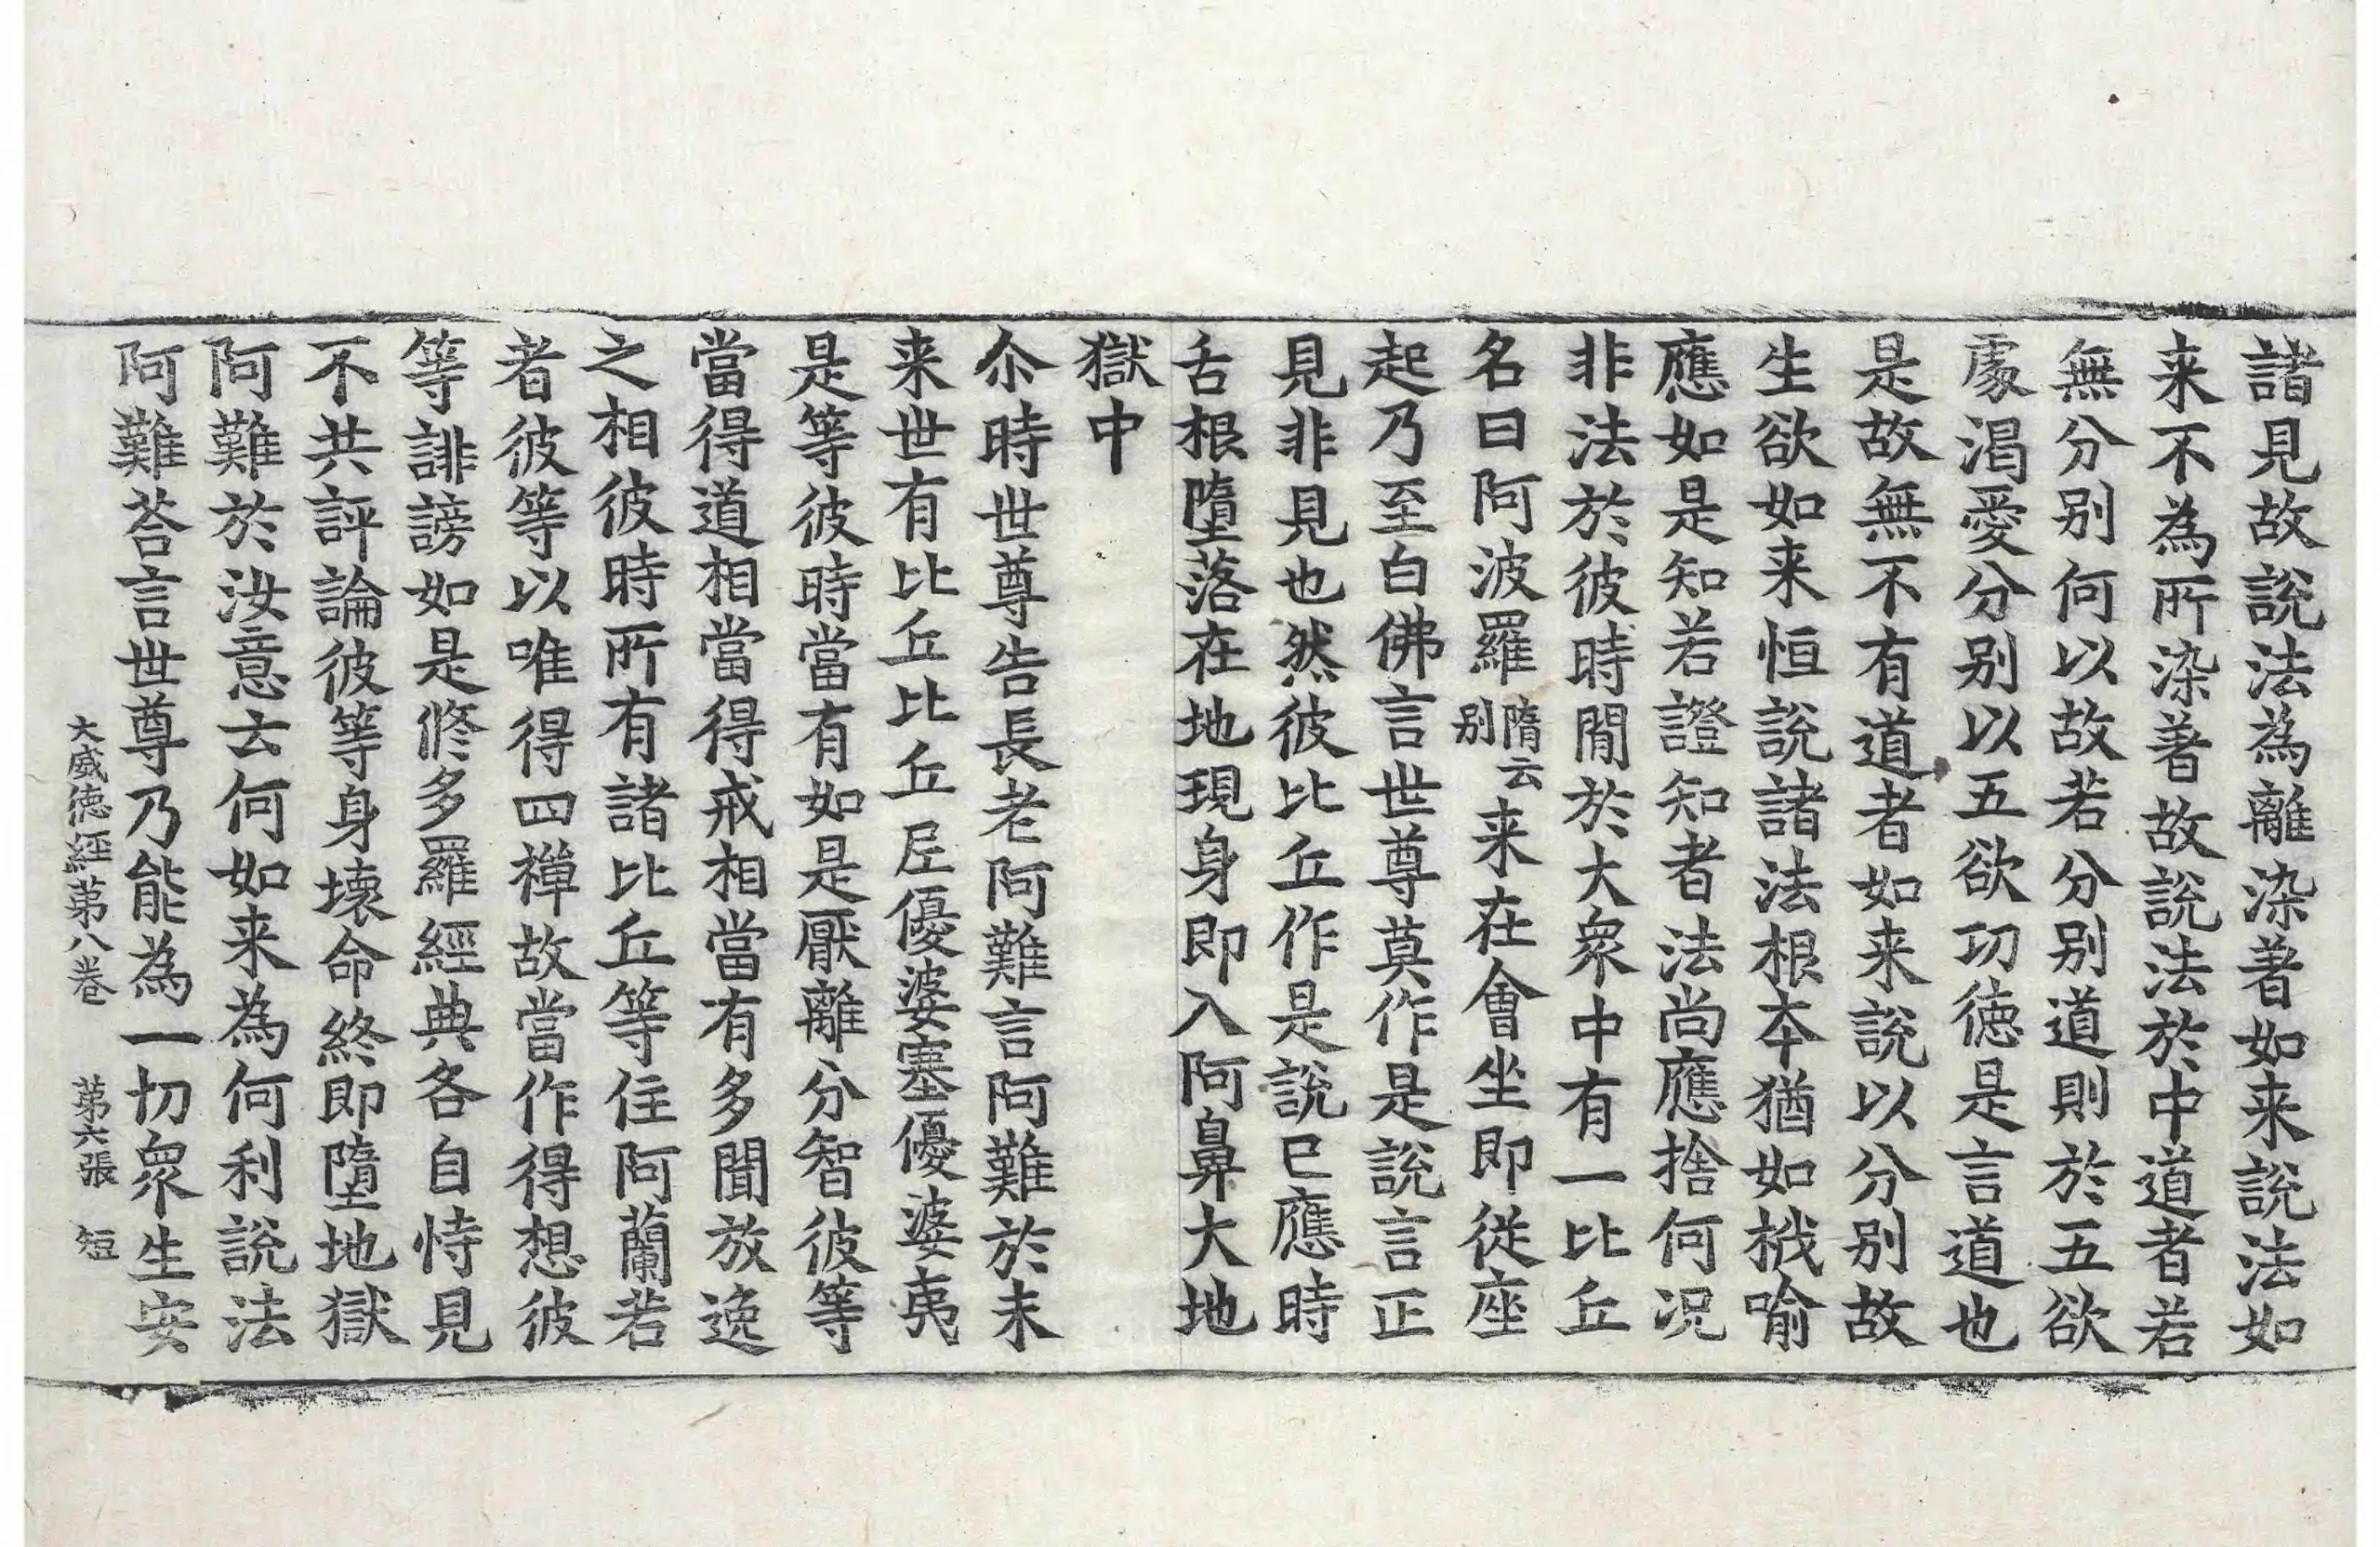 諸見故說法為離染著如来說法如
来不為所染著故說法於中道者若
無分別何以故若分別道則於五欲
處渴愛分別以五欲功徳是言道也
是故無不有道者如来說以分別故
生欲如来恒說諸法根本猶如栰喻
應如是知若證知者法尚應捨何況
非法於彼時閒於大衆中有一比丘
名曰阿波羅隋云別来在會坐即從座
起乃至白佛言世尊莫作是說言正
見非見也然彼比丘作是說已應時
舌根墮落在地現身即入阿鼻大地
獄中
尒時世尊告長老阿難言阿難於未
来世有比丘比丘尼優婆塞優婆夷
是等彼時當有如是厭離分智彼等
當得道相當得戒相當有多聞放逸
之相彼時所有諸比丘等住阿蘭若
者彼等以唯得四禅故當作得想彼
等誹謗如是修多羅經典各自恃見
不共評論彼等身壞命終即墮地獄
阿難於汝意云何如来為何利說法
阿難荅言世尊乃能為一切衆生安
大威徳經第八卷　第六張　短